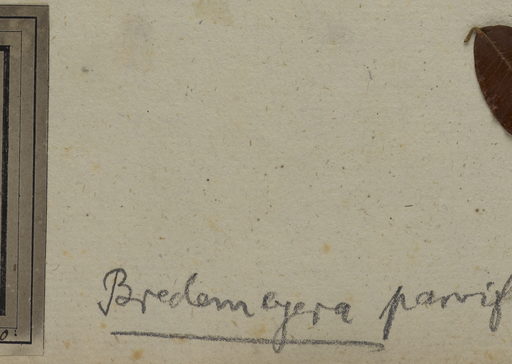 Bredemeyera parvif